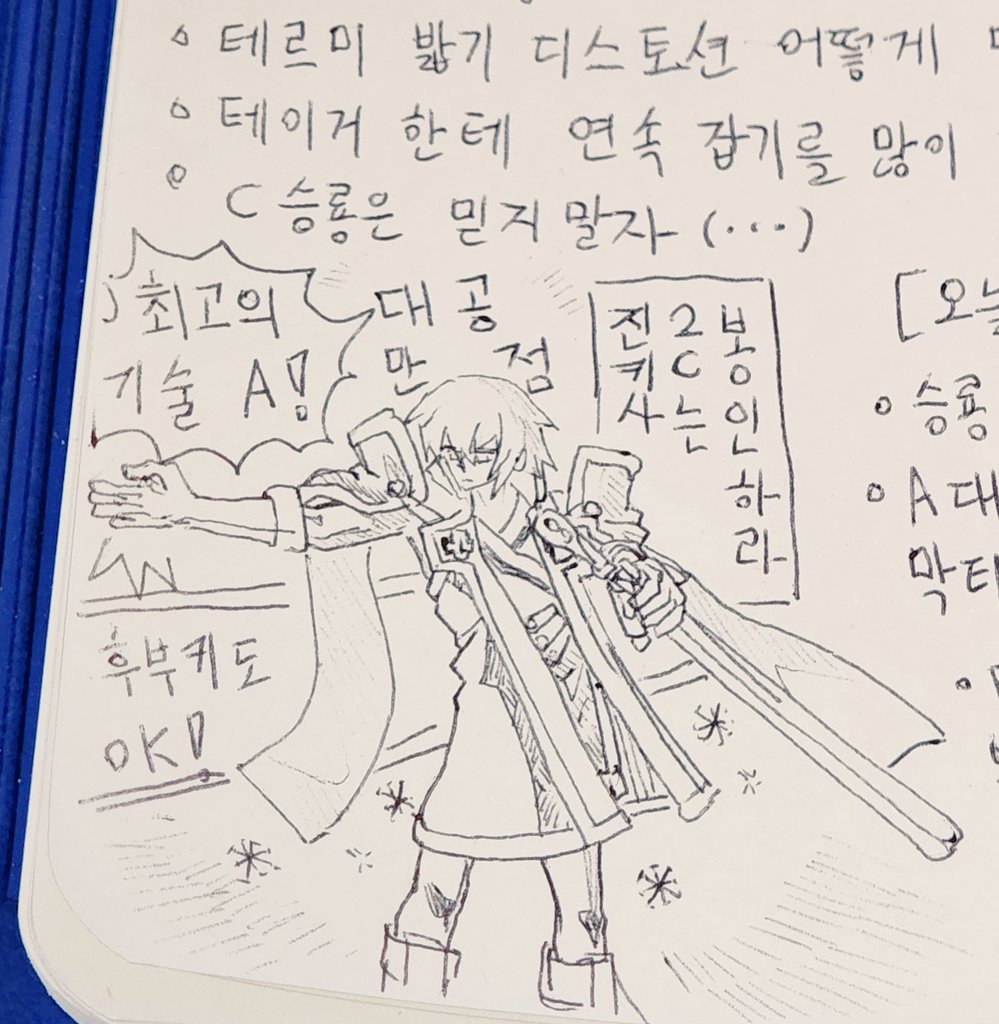 테르미 밟기 디스토션 어떻게
테이거 한테 연속 잡기를 많이
C 승룡은 믿지 말자 (...)
최고의
기술 A!
대공
만점
봉인하라
2C는
진키사
[오늘
승룡
A 대
막타
후부키도
OK!